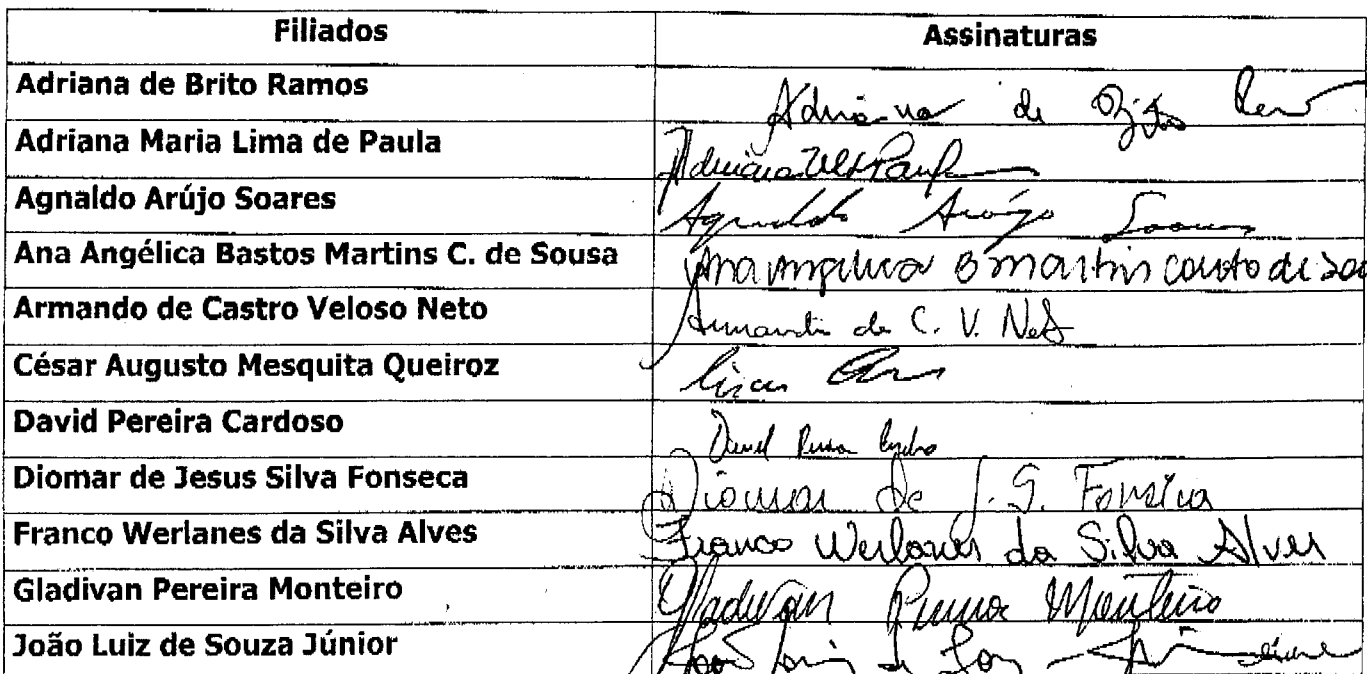 Filiados Assinaturas
Adriana de Brito Ramos Adriana de
Adriana Maria Lima de Paula Adriana
Agnaldo Arújo Soares Agnaldo Araújo Soares
Ana Angélica Bastos Martins C. de Sousa Ana Angelica B Martins Couto de Sou
Armando de Castro Veloso Neto Armando de C. V. Neto
César Augusto Mesquita Queiroz
David Pereira Cardoso
Diomar de Jesus Silva Fonseca Diomar de J. S. Fonseca
Franco Werlanes da Silva Alves Franco Werlanes da Silva Alves
Gladivan Pereira Monteiro Gladivan Pereira Monteiro
João Luiz de Souza Júnior João Luiz de